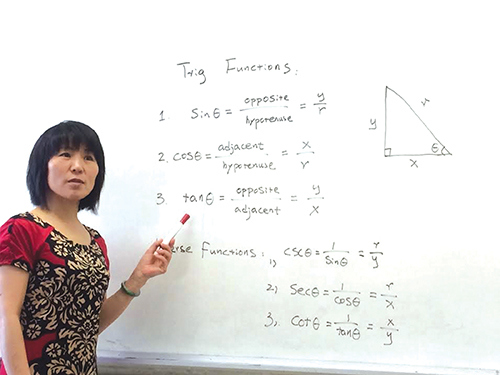 Trig Functions:
1. Sinθ = opposite/hypotenuse = y/r
2. cosθ = adjacent/hypotenuse = x/r
3. tanθ = opposite/adjacent = y/x
erse Functions: 1) cscθ = 1/sinθ = r/y
2) Secθ = 1/cosθ = r/x
3). Cotθ = 1/tanθ = x/y
y r
θ
x